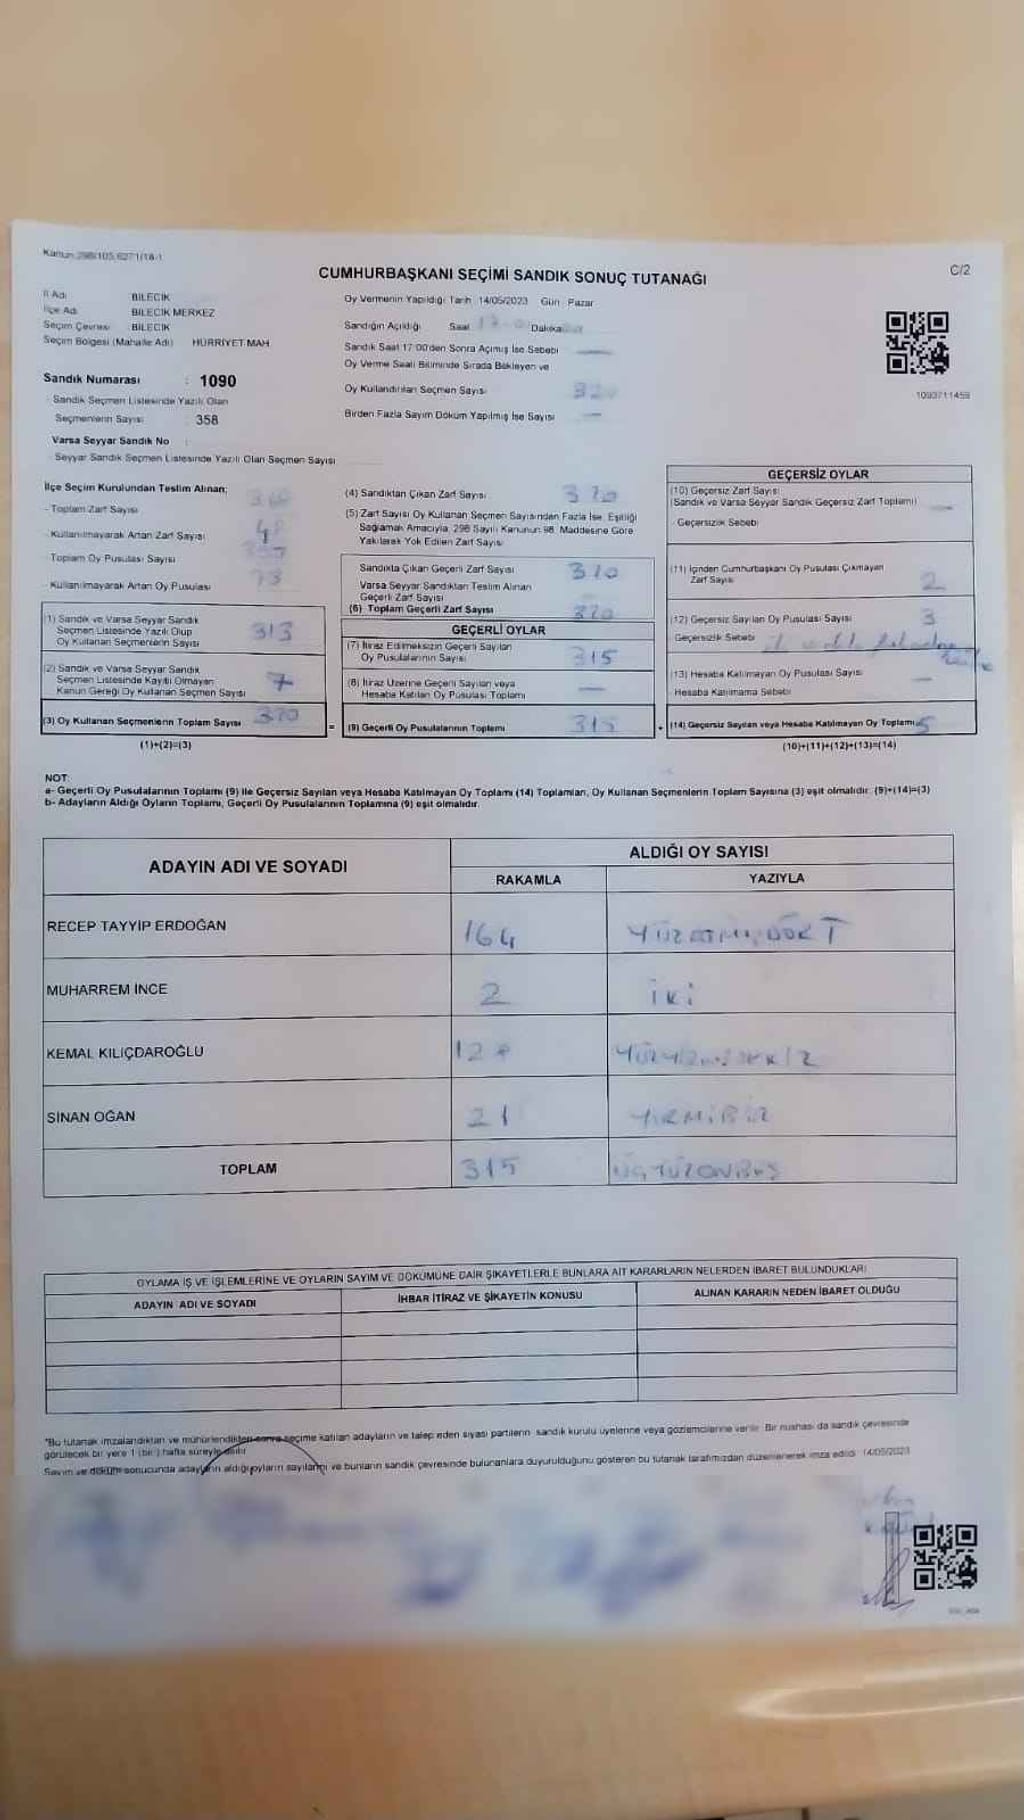 Kanun:298/105,6271/18-1
C/2
CUMHURBAŞKANI SEÇİMİ SANDIK SONUÇ TUTANAĞI
İl Adı BİLECİK
İlçe Adı BİLECİK MERKEZ
Seçim Çevresi BİLECİK
Seçim Bölgesi (Mahalle Adı) HÜRRİYET MAH
Sandık Numarası : 1090
Sandık Seçmen Listesinde Yazılı Olan
Seçmenlerin Sayısı : 358
Varsa Seyyar Sandık No :
Seyyar Sandık Seçmen Listesinde Yazılı Olan Seçmen Sayısı
Oy Vermenin Yapıldığı Tarih 14/05/2023 Gün : Pazar
Sandığın Açıldığı Saat Dakika
Sandık Saat 17:00'den Sonra Açılmış İse Sebebi —
Oy Verme Saati Bitiminde Sırada Bekleyen ve
Oy Kullandırılan Seçmen Sayısı
Birden Fazla Sayım Döküm Yapılmış İse Sayısı —
1093711459
İlçe Seçim Kurulundan Teslim Alınan;
- Toplam Zarf Sayısı
- Kullanılmayarak Artan Zarf Sayısı
- Toplam Oy Pusulası Sayısı
- Kullanılmayarak Artan Oy Pusulası 73
(1) Sandık ve Varsa Seyyar Sandık
Seçmen Listesinde Yazılı Olup
Oy Kullanan Seçmenlerin Sayısı 313
(2) Sandık ve Varsa Seyyar Sandık
Seçmen Listesinde Kayıtlı Olmayan
Kanun Gereği Oy Kullanan Seçmen Sayısı 7
(3) Oy Kullanan Seçmenlerin Toplam Sayısı 320
(1)+(2)=(3)
(4) Sandıktan Çıkan Zarf Sayısı 320
(5) Zarf Sayısı Oy Kullanan Seçmen Sayısından Fazla İse, Eşitliği
Sağlamak Amacıyla, 298 Sayılı Kanunun 98. Maddesine Göre
Yakılarak Yok Edilen Zarf Sayısı
Sandıkta Çıkan Geçerli Zarf Sayısı 320
Varsa Seyyar Sandıktan Teslim Alınan
Geçerli Zarf Sayısı
(6) Toplam Geçerli Zarf Sayısı 320
GEÇERLİ OYLAR
(7) İtiraz Edilmeksizin Geçerli Sayılan
Oy Pusulalarının Sayısı 315
(8) İtiraz Üzerine Geçerli Sayılan veya
Hesaba Katılan Oy Pusulası Toplamı —
= (9) Geçerli Oy Pusulalarının Toplamı 315
GEÇERSİZ OYLAR
(10) Geçersiz Zarf Sayısı
(Sandık ve Varsa Seyyar Sandık Geçersiz Zarf Toplamı) —
- Geçersizlik Sebebi
(11) İçinden Cumhurbaşkanı Oy Pusulası Çıkmayan
Zarf Sayısı 2
(12) Geçersiz Sayılan Oy Pusulası Sayısı 3
Geçersizlik Sebebi
(13) Hesaba Katılmayan Oy Pusulası Sayısı —
- Hesaba Katılmama Sebebi
+ (14) Geçersiz Sayılan veya Hesaba Katılmayan Oy Toplamı 5
(10)+(11)+(12)+(13)=(14)
NOT:
a- Geçerli Oy Pusulalarının Toplamı (9) ile Geçersiz Sayılan veya Hesaba Katılmayan Oy Toplamı (14) Toplamları, Oy Kullanan Seçmenlerin Toplam Sayısına (3) eşit olmalıdır. (9)+(14)=(3)
b- Adayların Aldığı Oyların Toplamı, Geçerli Oy Pusulalarının Toplamına (9) eşit olmalıdır.
ADAYIN ADI VE SOYADI ALDIĞI OY SAYISI
RAKAMLA YAZIYLA
RECEP TAYYİP ERDOĞAN 164 YÜZ ALTMIŞ DÖRT
MUHARREM İNCE 2 İKİ
KEMAL KILIÇDAROĞLU 128 YÜZYİRMİSEKİZ
SİNAN OĞAN 21 YİRMİBİR
TOPLAM 315 ÜÇYÜZONBEŞ
OYLAMA İŞ VE İŞLEMLERİNE VE OYLARIN SAYIM VE DÖKÜMÜNE DAİR ŞİKAYETLERLE BUNLARA AİT KARARLARIN NELERDEN İBARET BULUNDUKLARI
ADAYIN ADI VE SOYADI İHBAR İTİRAZ VE ŞİKAYETİN KONUSU ALINAN KARARIN NEDEN İBARET OLDUĞU
"Bu tutanak imzalandıktan ve mühürlendikten sonra seçime katılan adayların ve talep eden siyasi partilerin sandık kurulu üyelerine veya gözlemcilerine verilir. Bir nüshası da sandık çevresinde
görülecek bir yere 1 (bir) hafta süreyle asılır.
Sayım ve döküm sonucunda adayların aldığı oyların sayılarını ve bunların sandık çevresinde bulunanlara duyurulduğunu gösteren bu tutanak tarafımızdan düzenlenerek imza edildi. 14/05/2023